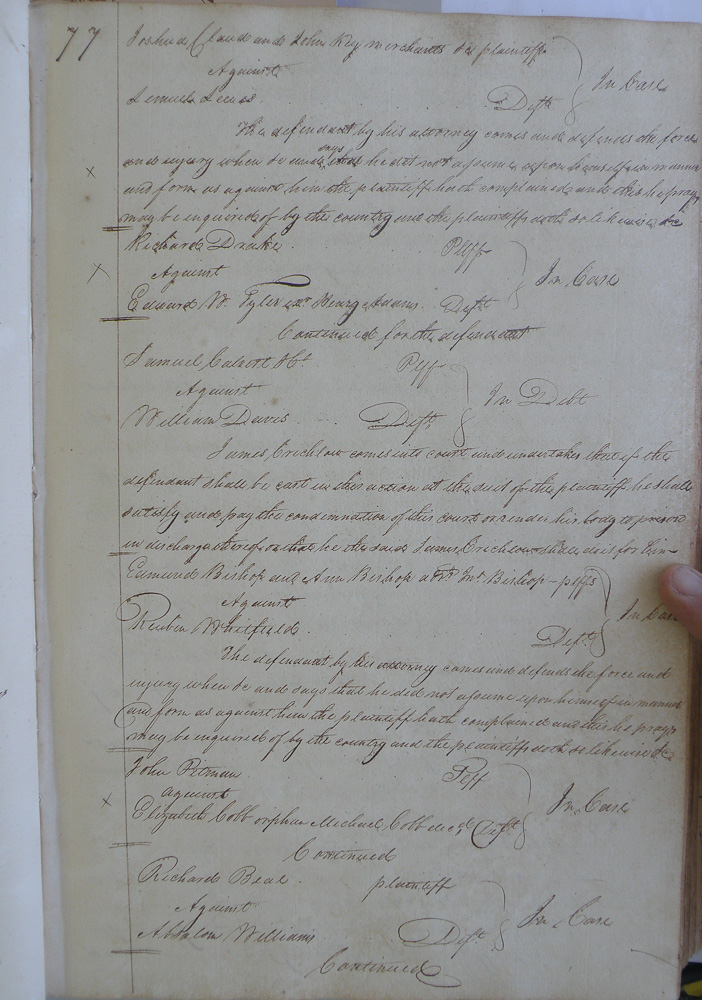 77
Joshua Claud and John Key merchants &c plaintiffs
Against
Lemuel
Deft
In Case
The defendant by his attorney comes and defends the force
and injury when &c and says that he did not assume upon himself in manner
and form as against him the plaintiff hath complained and this he prays
may be enquired of by the country and the plaintiffs doth so likewise &c
Richard Drake Pltff
Against
In Case
Edward W. Tyler exr Henry Adams Deft
Continued for the defendant
Samuel Calvert Pltff
Against
In Debt
William Davis Deft
James Crichlow comes into court and undertakes that if the
defendant shall be cast in this action at the suit of the plaintiff he shall
satisfy and pay the condemnation of this court or render his body to prison
in discharge thereof or that he the said James Crichlow shall do it for him
Edmund Bishop and Ann Bishop Bishop pltffs
Against
In Case
Reuben Whitfield
Deft
The defendant by his attorney comes and defends the force and
injury when &c and says that he did not assume upon himself in manner
and form as against him the plaintiff hath complained and this he prays
may be enquired of by the country and the plaintiffs doth so likewise &c
John Pitman Pltff
against
In Case
Elizabeth Cobb orphan Michael Cobb decd Deft
Continued
Richard Beal plaintiff
Against
In Case
Absalom Williams Deft
Continued